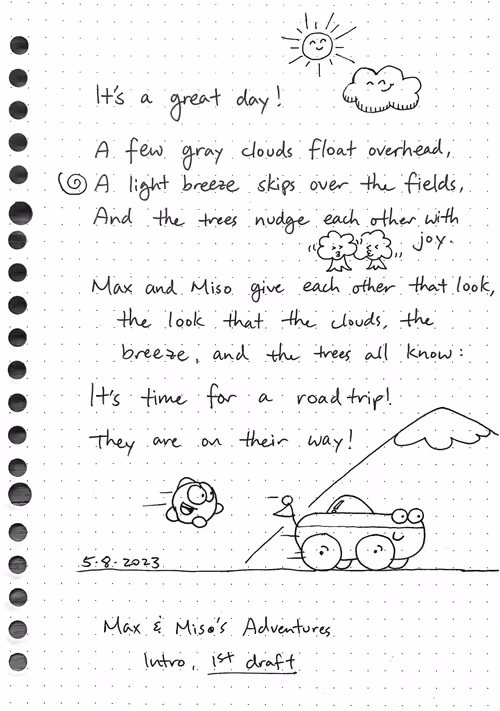 It's a great day!
A few gray clouds float overhead,
A light breeze skips over the fields,
And the trees nudge each other with
joy.
Max and Miso give each other that look,
the look that the clouds, the
breeze, and the trees all know:
It's time for a road trip!
They are on their way!
5.8.2023
Max & Miso's Adventures
Intro, 1st draft